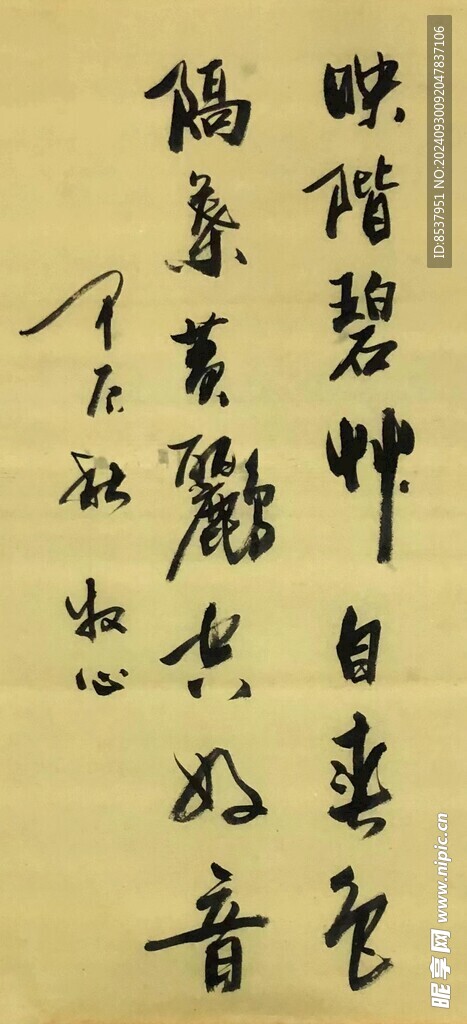 映階碧艸自春色
隔葉黄鸝空好音
甲辰秋 牧心
ID:8537951 NO:20240930092047837106
昵享网 www.nipic.cn